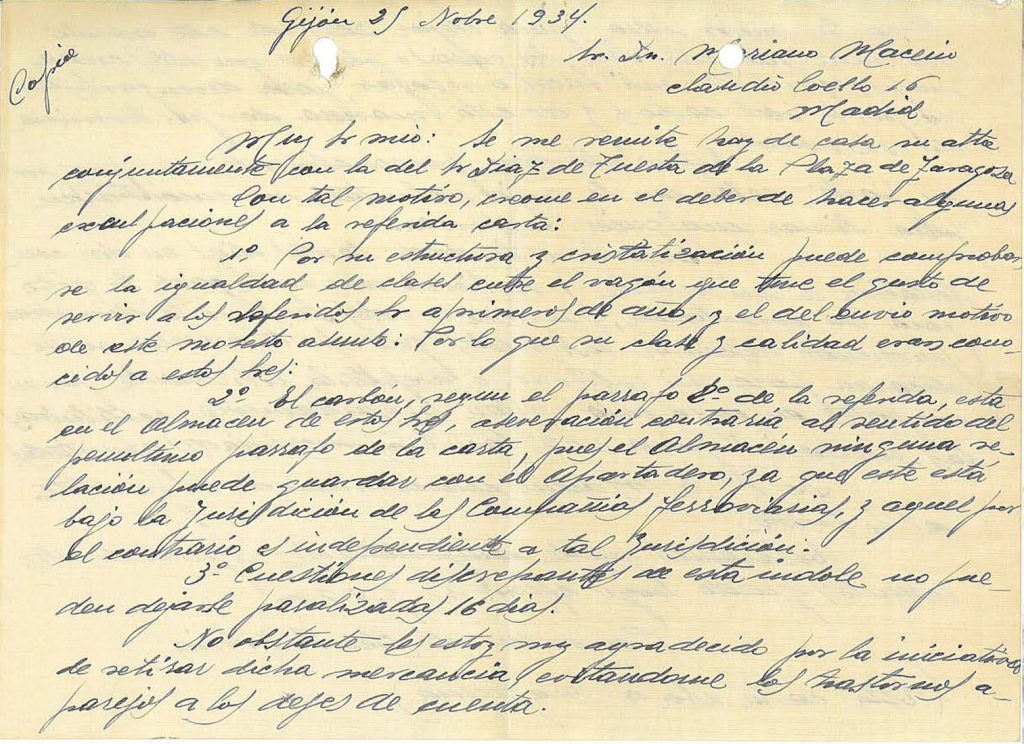 Gijón 25 Nobre 1934.
Copia
Sr. Dn. Mariano Macein
Claudio Coello 16
Madrid
Muy Sr mio: Se me remite hoy de casa su atta
conjuntamente con la del Sr Diaz de Tuesta de la Plaza de Zaragoza
Con tal motivo, creome en el deber de hacer algunas
exculpaciones a la referida carta:
1º Por su estructura y cristatización puede comprobar
se la igualdad de clases entre el vagón que tuve el gusto de
servir a los referidos Sr a primeros de año, y el del envio motivo
de este molesto asunto: Por lo que su clase y calidad eran cono-
cidos a estos Sres:
2º El carbón, segun el parrafo 2º de la referida, está
en el Almacen de estos Sres, aseveración contraria al sentido del
penultimo parrafo de la carta, pues el Almacén ninguna re-
lación puede guardar con el Apartadero, ya que este está
bajo la Jurisdición de las Compañias Ferroviarias, y aquel por
el contrario es independiente a tal Jurisdición.
3º Cuestiones discrepantes de esta indole no pue-
den dejarse paralizadas 16 dias.
No obstante les estoy muy agradecido por la iniciativa
de retirar dicha mercancia, evitandome los trastornos a-
parejos a los dejes de cuenta.